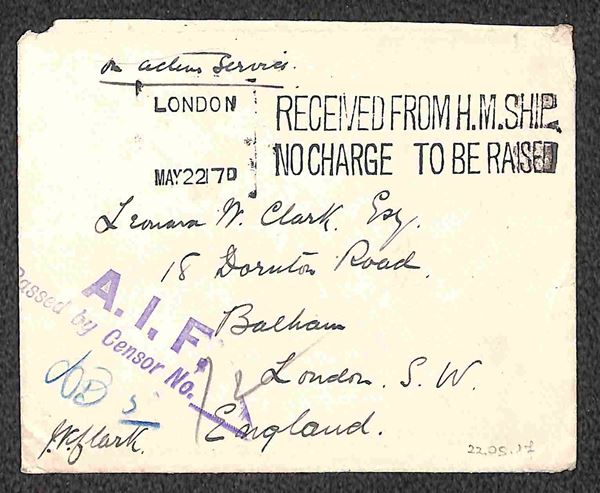 on active service.
LONDON
MAY 22 17 D
RECEIVED FROM H.M. SHIP.
NO CHARGE TO BE RAISED
Leonard W. Clark. Esq.
18 Dornton Road.
Balham
London. S. W.
England.
A.I.F.
Passed by Censor No.
J.P. Clark.
22.05.17